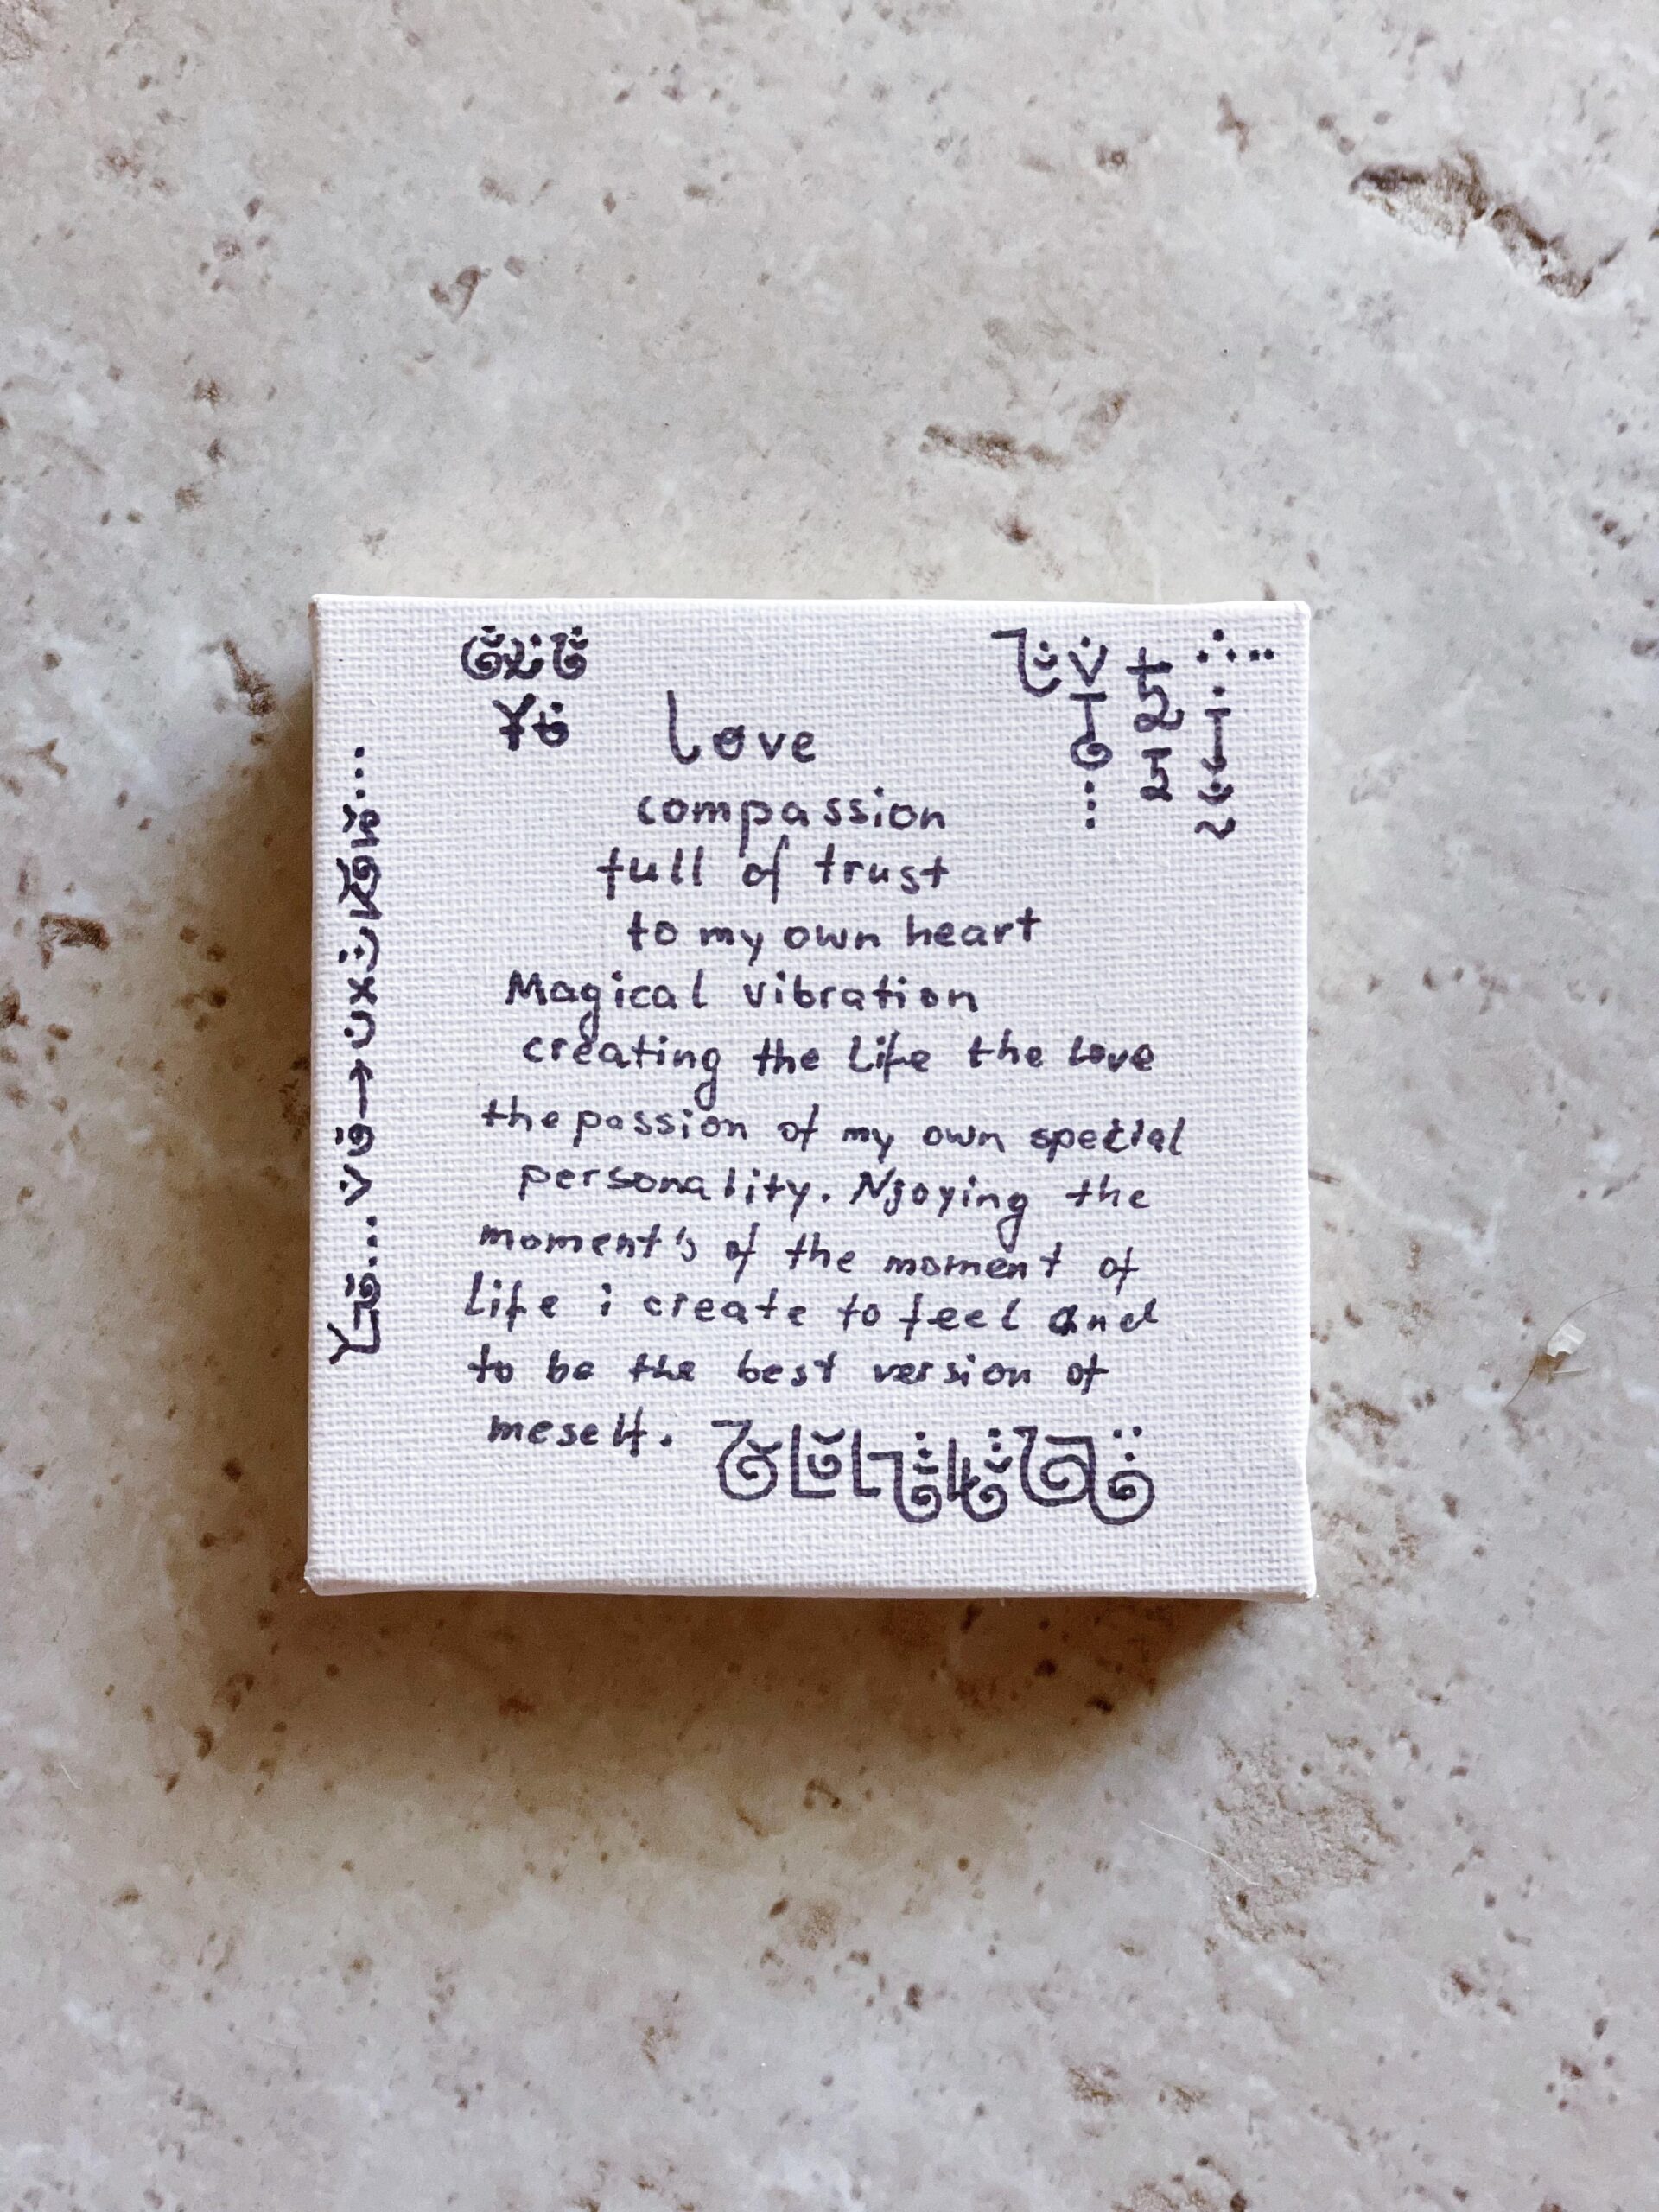 Love
compassion
full of trust
to my own heart
Magical vibration
creating the life the love
the passion of my own special
personality. Njoying the
moment's of the moment of
life i create to feel and
to be the best version of
meself.